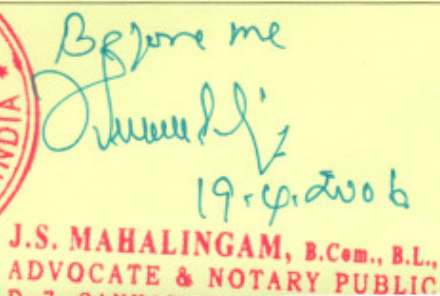 Before me
19.4.2006
INDIA
J.S. MAHALINGAM, B.Com., B.L.,
ADVOCATE & NOTARY PUBLIC